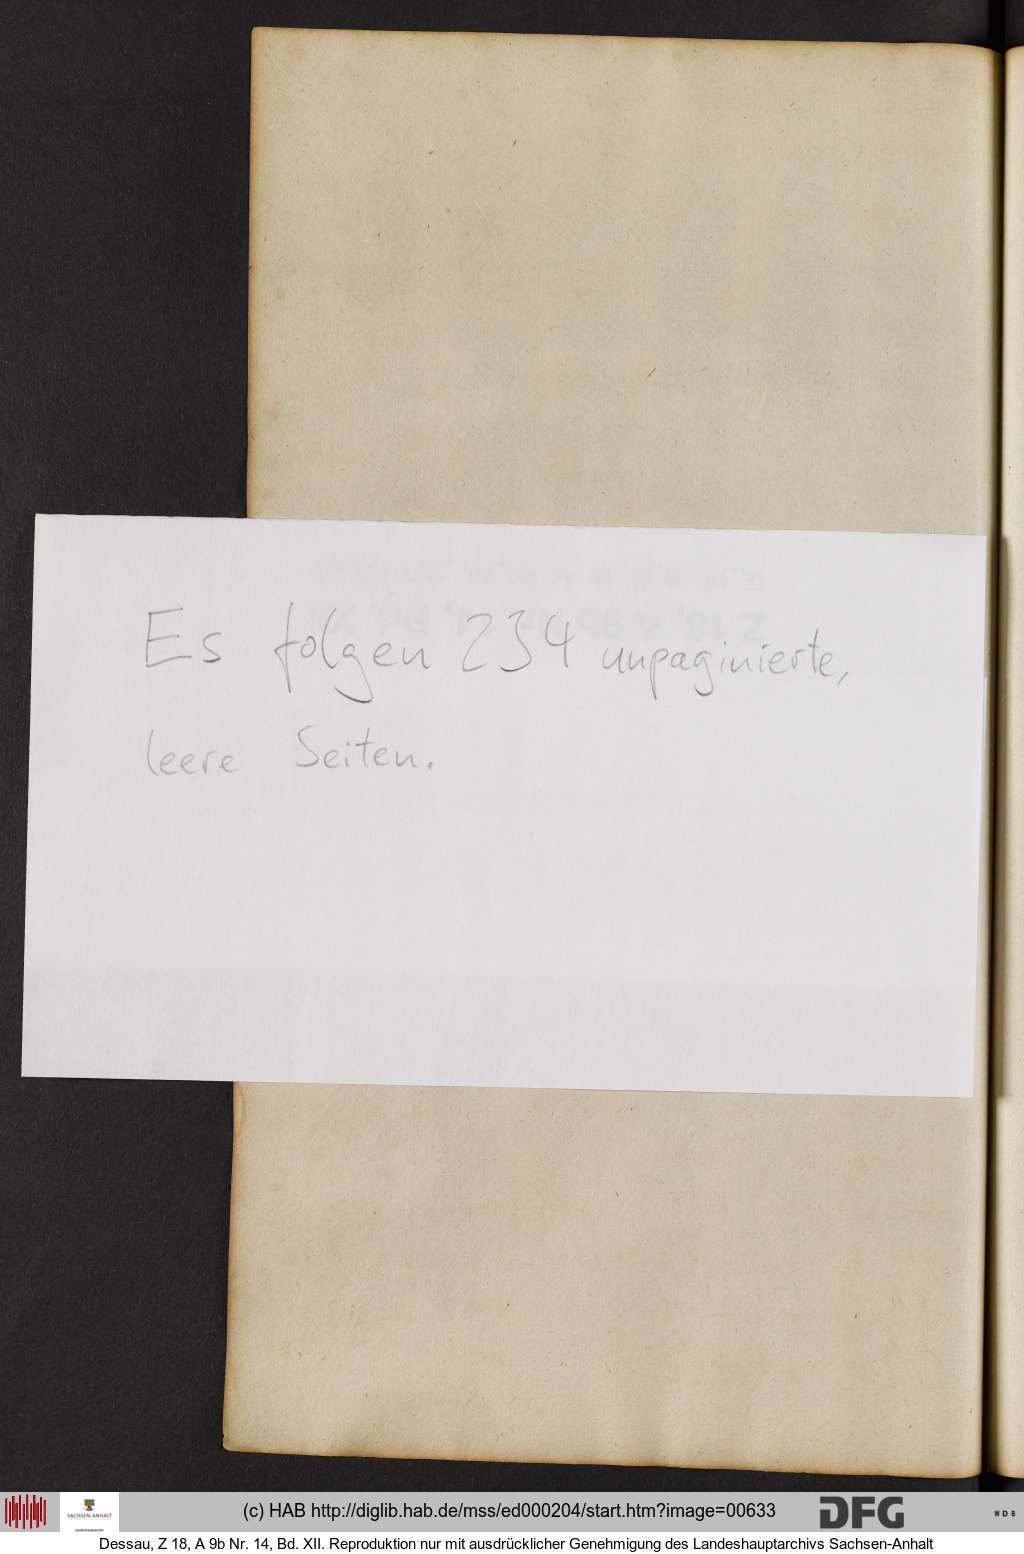 Es folgen 234 unpaginierte,
leere Seiten.
SACHSEN-ANHALT
Landeshauptarchiv
(c) HAB http://diglib.hab.de/mss/ed000204/start.htm?image=00633
DFG
WDB
Dessau, Z 18, A 9b Nr. 14, Bd. XII. Reproduktion nur mit ausdrücklicher Genehmigung des Landeshauptarchivs Sachsen-Anhalt